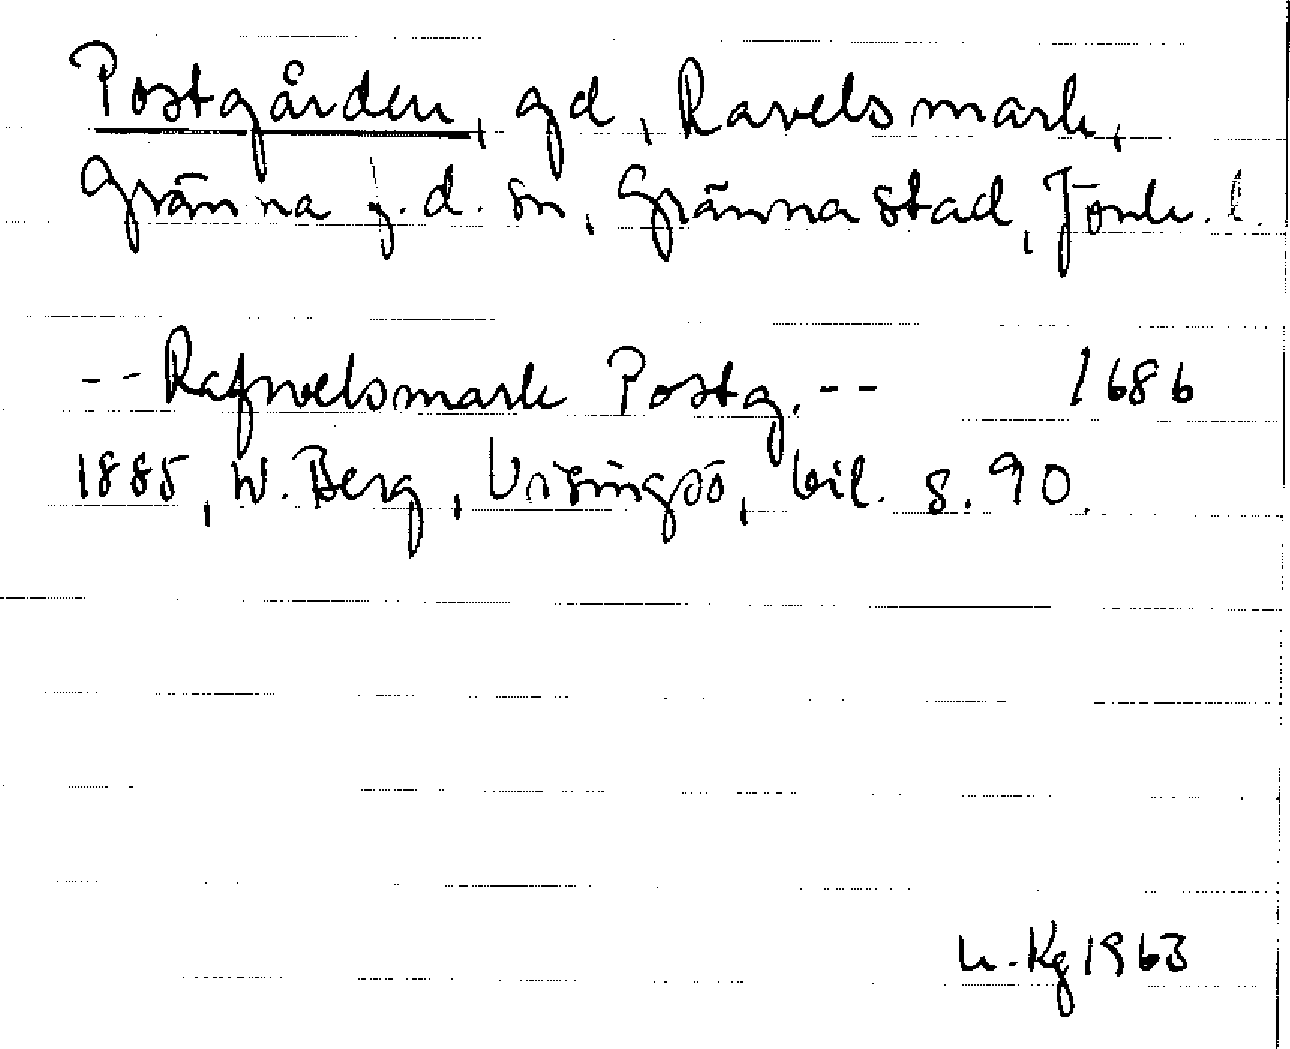 Postgården, gd, Ravelsmark,
Gränna g.d. sn, Gränna stad, Jönk. l.
-- Rafwelsmark Postg. -- 1686
1885, W. Berg, Visingsö, bil. s. 90.
Kg 1963